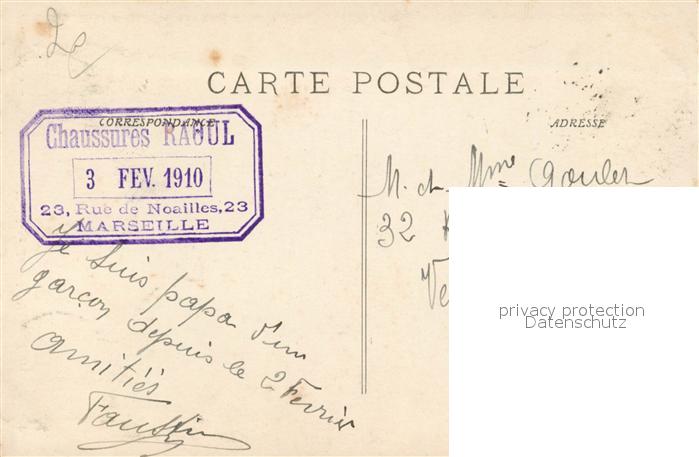 CARTE POSTALE
CORRESPONDANCE
ADRESSE
Chaussures RAOUL
3 FEV. 1910
23, Rue de Noailles, 23
MARSEILLE
Je suis papa d'un
garçon depuis le 2 Fevrier
amitiés
Faustin
M. et Mme Goulet
32
Ve
privacy protection
Datenschutz